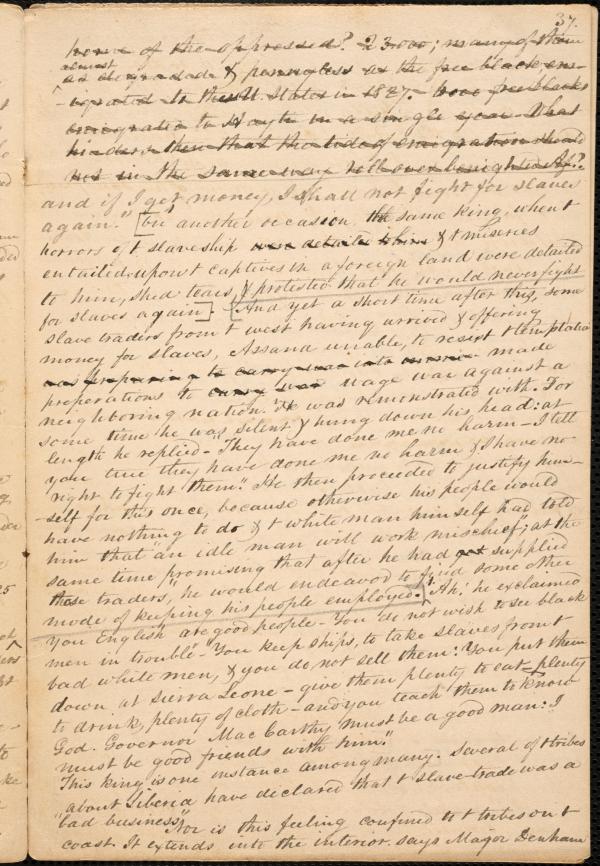 37.
home of the oppressed? 23000; many of them
almost
as degraded & pennyless as the free blacks em-
-igrated to the U. States in 1827. 6000 free blacks
emigrated to Hayti in a single year. What
hinders then that the tide of emigration should
not in the same way roll over benighted Af?
and if I get money, I shall not fight for slaves
again." [On another occasion the same king, when t
horrors of t slaveship were detailed to him & t miseries
entailed upon t captives in a foreign land were detailed
to him, shed tears, & protested that he would never fight
for slaves again] - [And yet a short time after this, some
slave traders from t west having arrived & offering
money for slaves, Assana unable, to resist t temptation
was preparing to carry war into made
preperations to carry war wage war against a
neighboring nation. "He was remonstrated with. For
some time he was silent & hung down his head: at
length he replied - "They have done me no harm - I tell
you true they have done me no harm & I have no
right to fight them". He then proceeded to justify him-
-self for this once, because otherwise his people would
have nothing to do & t white man himself had told
him that "an idle man will work mischief"; at the
same time promising that after he had got supplied
these traders, "he would endeavor to find some other
mode of keeping his people employed." ["Ah,' he exclaimed
you English are good people - You do not wish to see black
men in trouble - You keep ships, to take slaves from t
bad white men, & you do not sell them: You put them
down at Sierra Leone - give them plenty to eat - plenty
to drink, plenty of cloth - and you teach them to know
God. Governor MacCarthy must be a good man: I
must be good friends with him."
This king is one instance among many. Several of t tribes
"about Liberia have declared that t slave-trade was a
"bad business" Nor is this feeling confined to t tribes on t
coast. It extends into the interior. says Major Denham